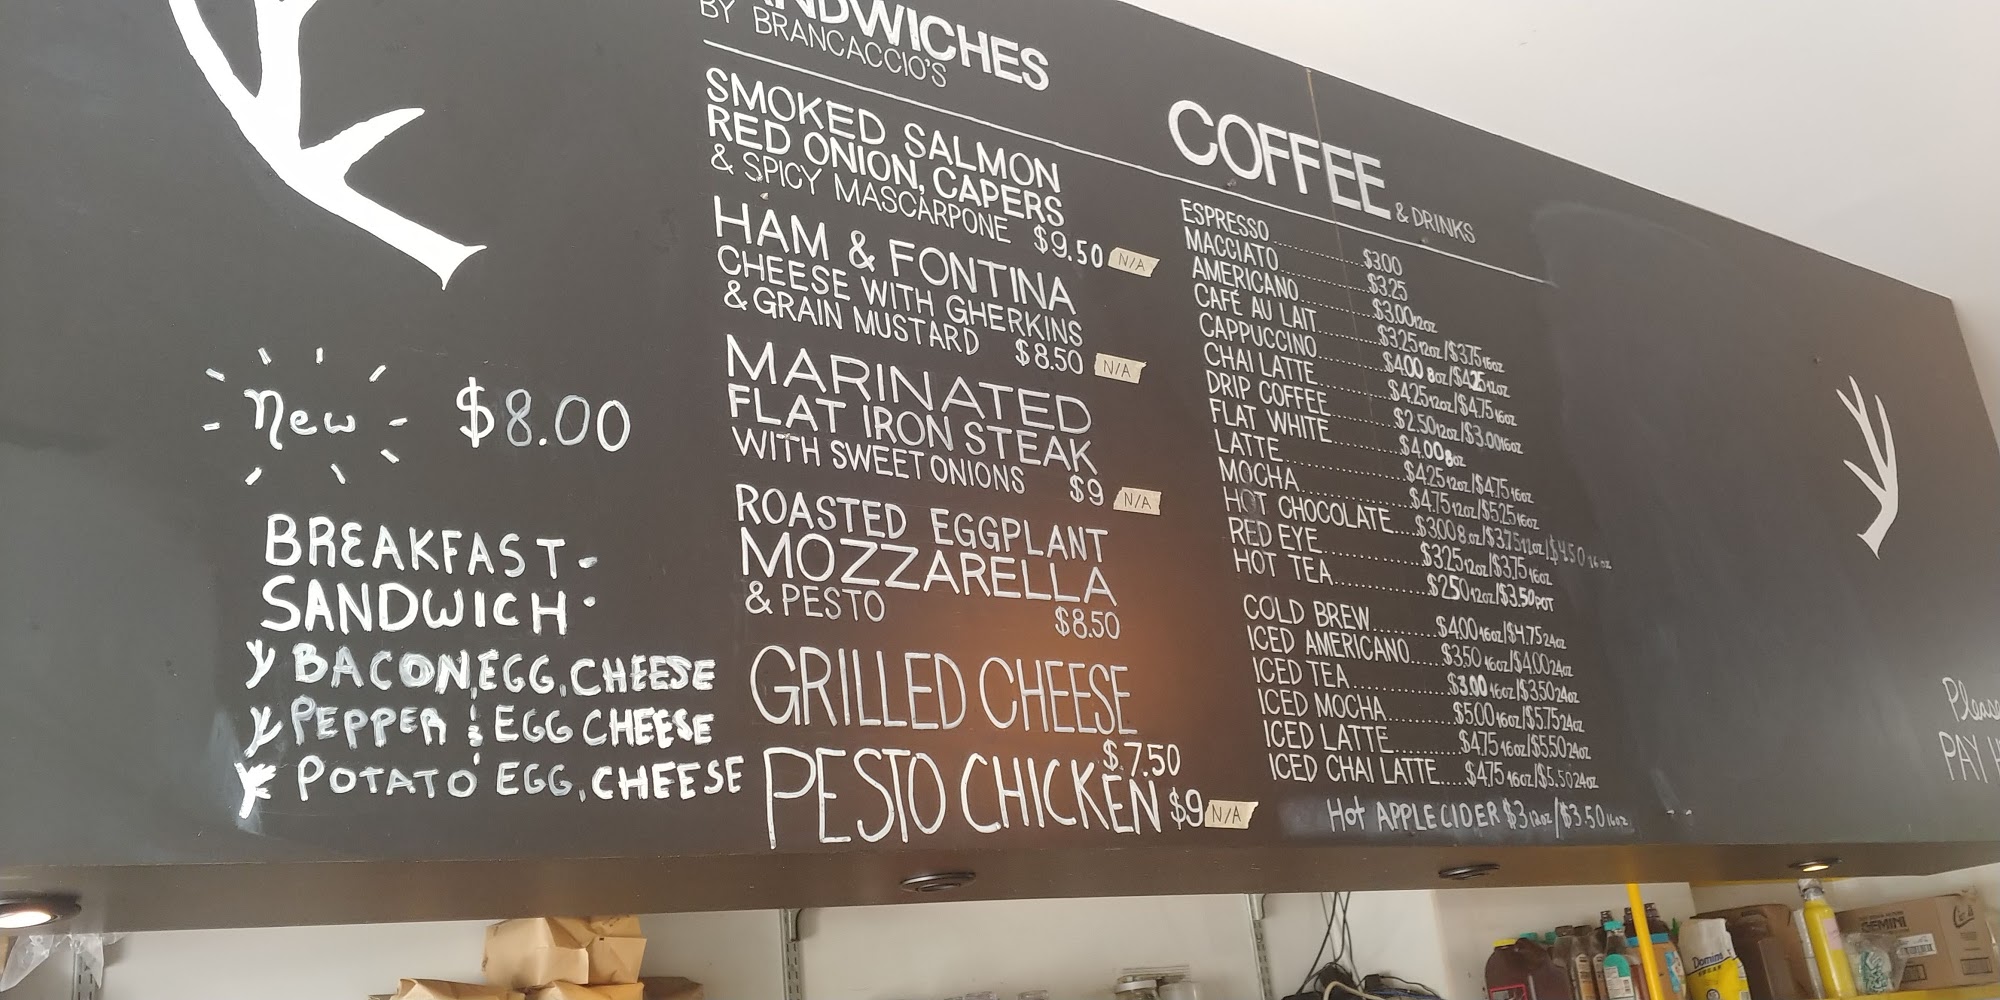 New
$8.00
BREAKFAST-
SANDWICH·
BACON, EGG, CHEESE
PEPPER & EGG CHEESE
POTATO EGG, CHEESE
BY BRANCACCIO'S
SMOKED SALMON
RED ONION, CAPERS
& SPICY MASCARPONE $9.50 N/A
HAM & FONTINA
CHEESE WITH GHERKINS
& GRAIN MUSTARD $8.50 N/A
MARINATED
FLAT IRON STEAK
WITH SWEET ONIONS $9 N/A
ROASTED EGGPLANT
MOZZARELLA
& PESTO $8.50
GRILLED CHEESE
$7.50
PESTO CHICKEN $9 N/A
COFFEE & DRINKS
ESPRESSO..........$3.00
MACCIATO..........$3.25
AMERICANO..........$3.00 12oz
CAFÉ AU LAIT..........$3.25 12oz/$3.75 16oz
CAPPUCCINO..........$4.00 8oz/$4.25 12oz
CHAI LATTE..........$4.25 12oz/$4.75 16oz
DRIP COFFEE..........$2.50 12oz/$3.00 16oz
FLAT WHITE..........$4.00 8oz
LATTE..........$4.25 12oz/$4.75 16oz
MOCHA..........$4.75 12oz/$5.25 16oz
HOT CHOCOLATE...$3.00 8oz/$3.75 12oz/$4.50 16oz
RED EYE..........$3.25 12oz/$3.75 16oz
HOT TEA..........$2.50 12oz/$3.50 POT
COLD BREW.......$4.00 16oz/$4.75 24oz
ICED AMERICANO.....$3.50 16oz/$4.00 24oz
ICED TEA..........$3.00 16oz/$3.50 24oz
ICED MOCHA.......$5.00 16oz/$5.75 24oz
ICED LATTE.......$4.75 16oz/$5.50 24oz
ICED CHAI LATTE....$4.75 16oz/$5.50 24oz
Hot APPLE CIDER $3 12oz/$3.50 16oz
Please
PAY
Domino
SUGAR
GEMINI